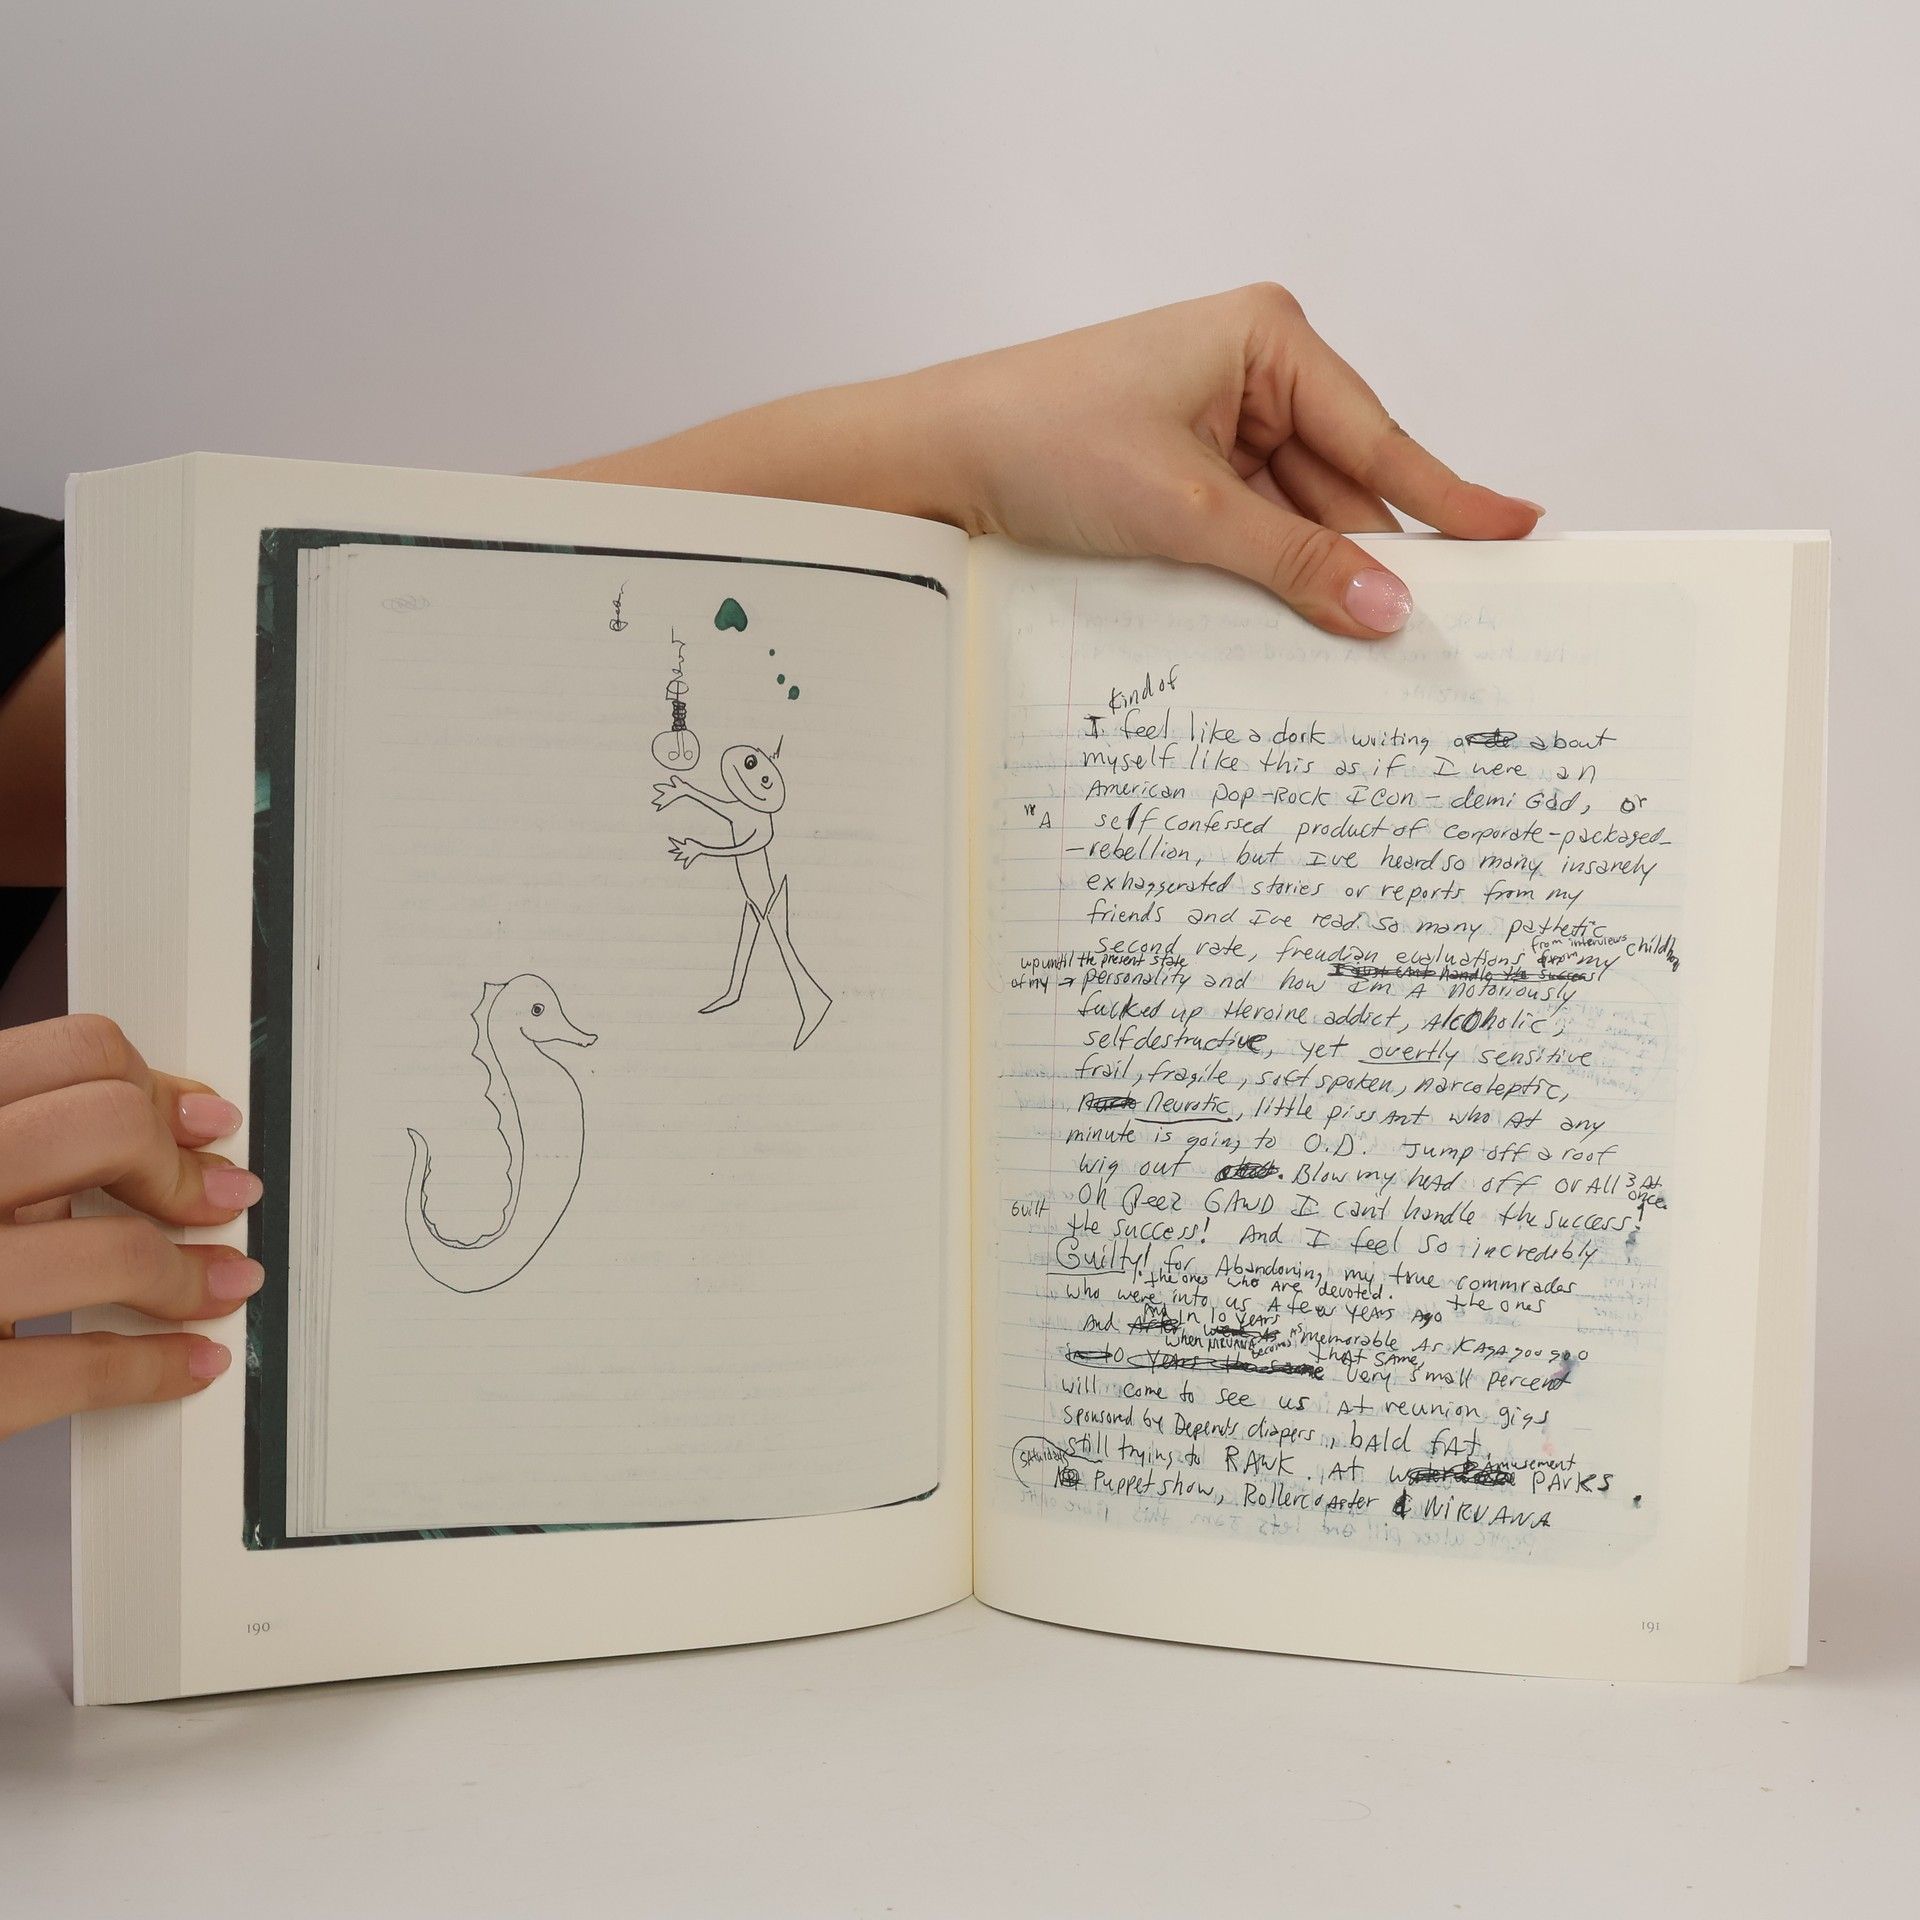 190
Kind of
I feel like a dork writing about
myself like this as if I were an
American pop-Rock ICon - demi God, or
A self confessed product of corporate-packaged-
-rebellion, but Ive heard so many insanely
exhaggerated stories or reports from my
friends and Ive read so many pathetic
second rate, freudian evaluations from interviews from my childhood
up until the present state
of my → personality and how I'm A notoriously
I just cant handle the success!
fucked up Heroine addict, AlcOholic,
selfdestructive, yet overtly sensitive
frail, fragile, soft spoken, narcoleptic,
Neurotic, little piss Ant who At any
minute is going to O.D. Jump off a roof
wig out Blow my head off OR All 3 At once.
Oh Geez GAWD I cant handle the success!
Guilt
the success! And I feel so incredibly
Guilty! for Abandoning my true commrades
the ones who Are devoted. the ones
who were into us A few YEArs Ago
And in 10 YEArs
when NIRVANA becomes As memorable As KAgAgoogoo
thAt SAme, very small percent
will come to see us At reunion gigs
sponsored by Depends diapers, bAld fAt,
still trying to RAwk. At Amusement PArks
SAturdays Puppet show, Rollercoaster & NiRVANA
191